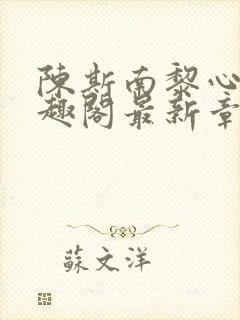 陳斯南黎心
趣閣最新章
蘇文洋